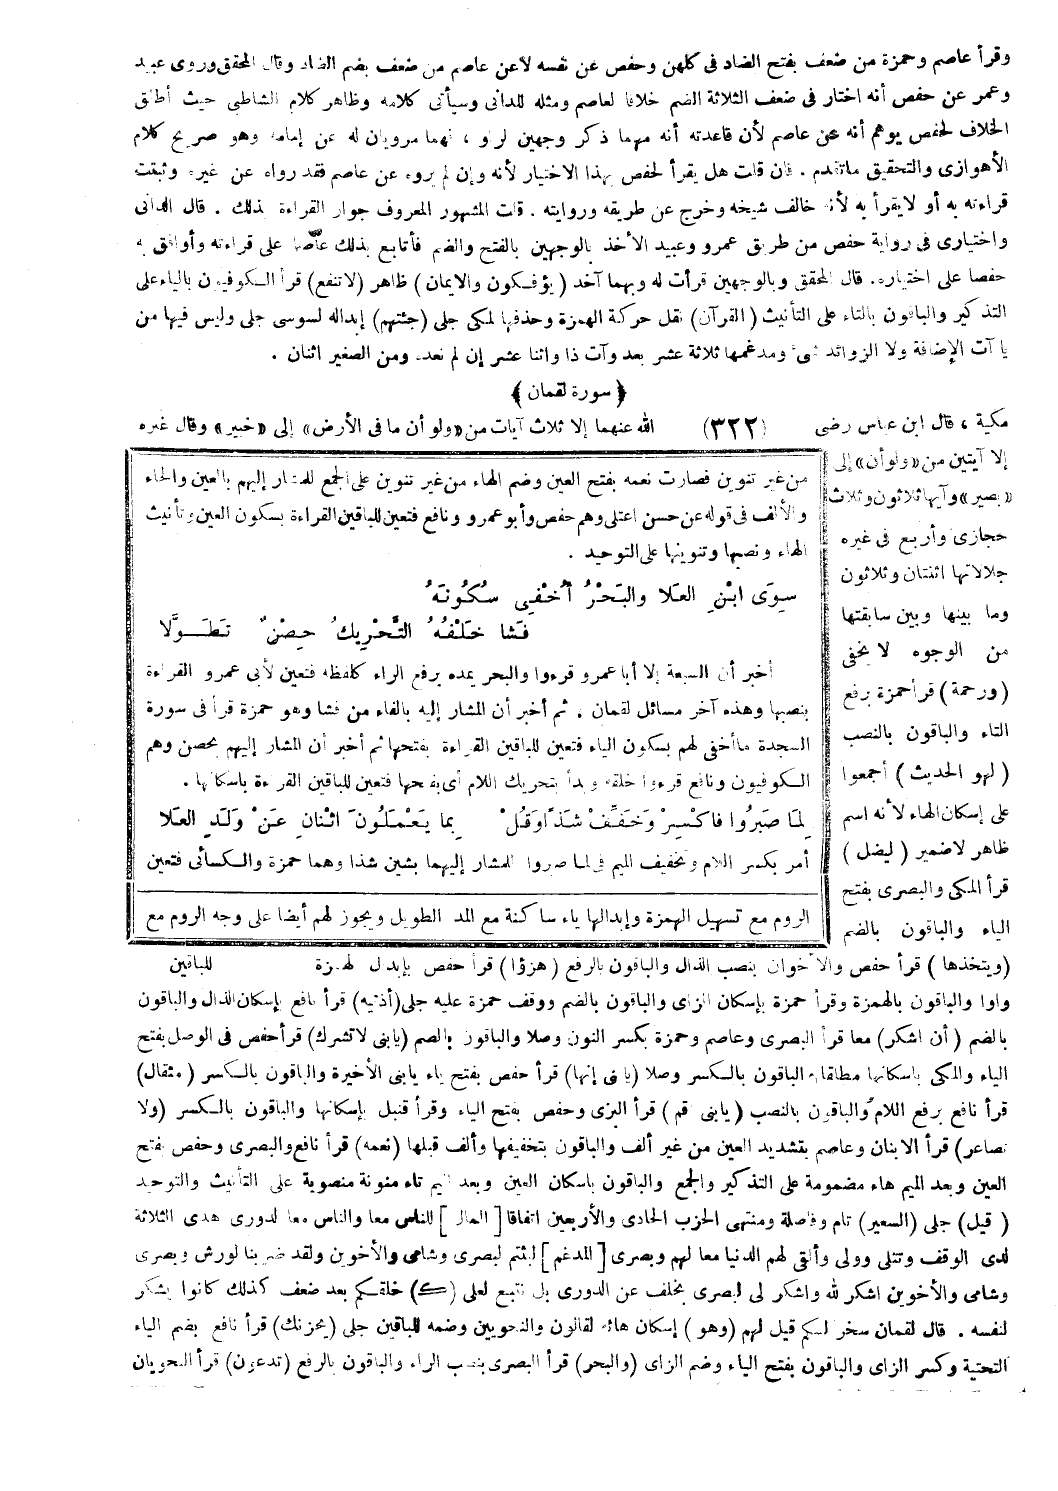 وقرأ عاصم وحمزة من ضعف بفتح الضاد فى كلهن وحفص عن نفسه لاعن عاصم من ضعف بضم الضاد وقال المحقق وروى عبيد
وعمر عن حفص أنه اختار فى ضعف الثلاثة الضم خلافا لعاصم ومثله للدانى وسيأتى كلامه وظاهر كلام الشاطبى حيث أطلق
الخلاف لحفص يوهم أنه عن عاصم لأن قاعدته أنه مهما ذكر وجهين لراو ، فهما مرويان له عن إمامه وهو صريح كلام
الأهوازى والتحقيق ماتقدم . فان قلت هل يقرأ لحفص بهذا الاختيار لأنه وإن لم يروه عن عاصم فقد رواه عن غيره وثبتت
قراءته به أو لايقرأ به لأنه خالف شيخه وخرج عن طريقه وروايته . قلت المشهور المعروف جواز القراءة بذلك . قال الدانى
واختيارى فى رواية حفص من طريق عمرو وعبيد الأخذ بالوجهين بالفتح والضم فأتابع بذلك عاصما على قراءته وأوافق به
حفصا على اختياره. قال المحقق وبالوجهين قرأت له وبهما آخذ (يؤفكون والايمان) ظاهر (لاتنفع) قرأ الكوفيون بالياء على
التذكير والباقون بالتاء على التأنيث (القرآن) نقل حركة الهمزة وحذفها لمكى جلى (جئتهم) إبداله لسوسى جلى وليس فيها من
يا آت الإضافة ولا الزوائد شىء ومدغمها ثلاثة عشر بعد وآت ذا واثنا عشر إن لم نعده ومن الصغير اثنان .
﴿ سورة لقمان ﴾
مكية ، قال ابن عباس رضى (٣٢٢) الله عنهما إلا ثلاث آيات من «ولو أن ما فى الأرض» إلى «خبير» وقال غيره
إلا آيتين من «ولو أن» إلى
«بصير» وآيها ثلاثون وثلاث
حجازى وأربع فى غيره
جلالاتها اثنتان وثلاثون
وما بينها وبين سابقتها
من الوجوه لا يخفى
(ورحمة) قرأ حمزة برفع
التاء والباقون بالنصب
(لهو الحديث) أجمعوا
على إسكان الهاء لأنه اسم
ظاهر لاضمير (ليضل)
قرأ المكى والبصرى بفتح
الياء والباقون بالضم
من غير تنوين فصارت نعمه بفتح العين وضم الهاء من غير تنوين على الجمع للمشار إليهم بالعين والحاء
والألف فى قوله عن حسن اعتلى وهم حفص وأبو عمرو ونافع فتعين للباقين القراءة بسكون العين وتأنيث
الهاء ونصبها وتنوينها على التوحيد .
سِوَى ابْنِ العَلا والبَحْرُ أُخْفِى سُكُونَهُ
فَشَا خَلْفَهُ التَّحْرِيكُ حِصْنٌ تَطَوَّلَا
أخبر أن السبعة إلا أبا عمرو قرءوا والبحر يمده برفع الراء كلفظه فتعين لأبى عمرو القراءة
بنصبها وهذه آخر مسائل لقمان . ثم أخبر أن المشار إليه بالفاء من فشا وهو حمزة قرأ فى سورة
السجدة ماأخفى لهم بسكون الياء فتعين للباقين القراءة بفتحها ثم أخبر أن المشار إليهم بحصن وهم
الكوفيون ونافع قرءوا خلقه وبدأ بتحريك اللام أى بفتحها فتعين للباقين القراءة باسكانها .
لِمَا صَبَرُوا فَاكْسِرْ وَخَفِّفْ شَذًا وَقُلْ بِما يَعْمَلُونَ اثْنانِ عَنْ وَلَدِ العَلا
أمر بكسر اللام وتخفيف الميم فى لما صبروا للمشار إليهما بشين شذا وهما حمزة والكسائى فتعين
الروم مع تسهيل الهمزة وإبدالها ياء ساكنة مع المد الطويل ويجوز لهم أيضا على وجه الروم مع
(ويتخذها) قرأ حفص والأخوان بنصب الذال والباقون بالرفع (هزؤا) قرأ حفص بإبدال الهمزة للباقين
واوا والباقون بالهمزة وقرأ حمزة بإسكان الزاى والباقون بالضم ووقف حمزة عليه جلى (أذنيه) قرأ نافع بإسكان الذال والباقون
بالضم (أن اشكر) معا قرأ البصرى وعاصم وحمزة بكسر النون وصلا والباقون بالضم (يابنى لاتشرك) قرأ حفص فى الوصل بفتح
الياء والمكى باسكانها مطلقا والباقون بالكسر وصلا (يابنى إنها) قرأ حفص بفتح ياء يابنى الأخيرة والباقون بالكسر (مثقال)
قرأ نافع برفع اللام والباقون بالنصب (يابنى قم) قرأ البزى وحفص بفتح الياء وقرأ قنبل بإسكانها والباقون بالكسر (ولا
تصاعر) قرأ الابنان وعاصم بتشديد العين من غير ألف والباقون بتخفيفها وألف قبلها (نعمه) قرأ نافع والبصرى وحفص بفتح
العين وبعد الميم هاء مضمومة على التذكير والجمع والباقون باسكان العين وبعد الميم تاء منونة منصوبة على التأنيث والتوحيد
(قيل) جلى (السعير) تام وفاصلة ومنتهى الحزب الحادى والأربعين اتفاقا [الممال] للناس معا والناس معا لدورى هدى الثلاثة
لدى الوقف وتتلى وولى وألقى لهم الدنيا معا لهم وبصرى [المدغم] لبثتم لبصرى وشامى والأخوين ولقد ضربنا لورش وبصرى
وشامى والأخوين اشكر لله واشكر لى لبصرى بخلف عن الدورى بل نتبع لعلى (ك) خلقكم بعد ضعف كذلك كانوا يشكر
لنفسه . قال لقمان سخر لكم قيل لهم (وهو) إسكان هائه لقالون والنحويين وضمه للباقين جلى (يحزنك) قرأ نافع بضم الياء
التحتية وكسر الزاى والباقون بفتح الياء وضم الزاى (والبحر) قرأ البصرى بنصب الراء والباقون بالرفع (تدعون) قرأ النحويان